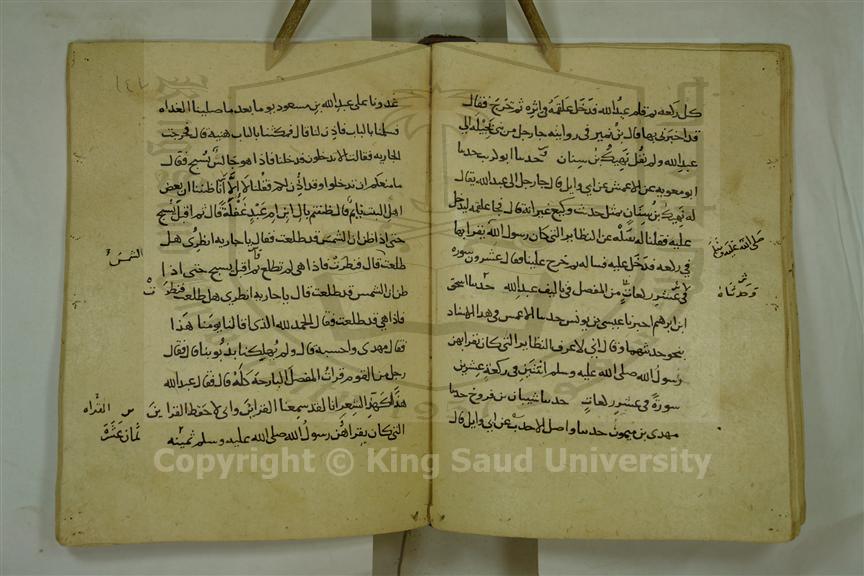 كل ركعه ثم قام عبدالله فدخل علقمه في اثره ثم خرج فقال
قد اخبرني بها قال بن نمير في روايته جا رجل من بني بجيله الى
عبدالله ولم يقل نهيك بن سنان وحدثنا ابوكريب حدثنا
ابو معويه عن الاعمش عن ابي وايل قال جا رجل الى عبدالله يقال
له نهيك بن سنان بمثل حديث وكيع غير انه قال فجا علقمه ليدخل
عليه فقلنا له سله عن النظاير التي كان رسول الله يقرا بها
صلى الله عليه وسلم
في ركعه فدخل عليه فساله ثم خرج علينا فقال عشرون سوره
في عشر ركعات من المفصل في تاليف عبدالله حدثنا اسحق
وحدثناه
ابن ابرهيم اخبرنا عيسى بن يونس حدثنا الاعمش في هذا الاسناد
بنحو حديثهما وقال اني لاعرف النظاير التي كان يقرا بهن
رسول الله صلى الله عليه وسلم اثنتين في ركعة عشرين
سورة في عشر ركعات حدثنا شيبان بن فروخ حدثنا
مهدي بن ميمون حدثنا واصل الاحدب عن ابي وايل قال
غدونا على عبدالله بن مسعود يوما بعد ما صلينا الغداه
فسلمنا بالباب فاذن لنا قال فمكثنا بالباب هنية قال فخرجت
الجاريه فقالت الا تدخلون فدخلنا فاذا هو جالس يسبح فقال
ما منعكم ان تدخلوا وقد اذن لكم فقلنا لا الا انا ظننا ان بعض
اهل البيت نايم قال ظننتم بال ابن ام عبد غفلة قال ثم اقبل يسبح
حتى اذا ظن ان الشمس قد طلعت فقال يا جاريه انظري هل
طلعت قال فنظرت فاذا هي لم تطلع فاقبل يسبح حتى اذا
الشمس
ظن ان الشمس قد طلعت قال يا جاريه انظري هل طلعت فنظرت
فاذا هي قد طلعت فقال الحمد لله الذي اقالنا يومنا هذا
فقال مهدي واحسبه قال ولم يهلكنا بذنوبنا قال فقال
رجل من القوم قرات المفصل البارحة كله قال فقال عبدالله
هذا كهذ الشعر انا لقد سمعنا القراين واني لاحفظ القراين
التي كان يقراهن رسول الله صلى الله عليه وسلم ثمنيه
ثمان عشرة
Copyright © King Saud University